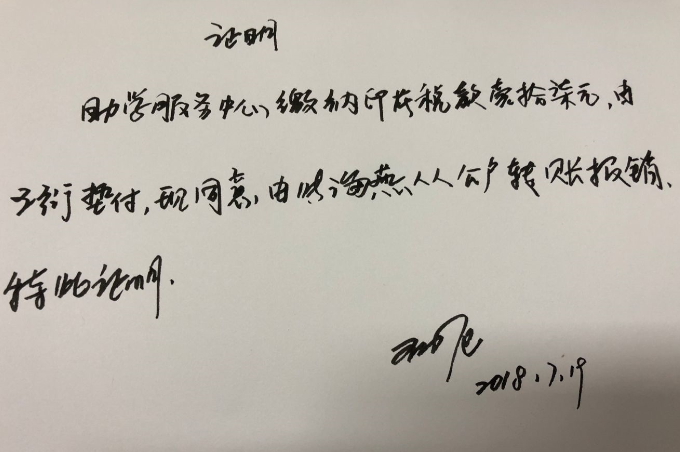 证明
助学服务中心缴纳印花税款 拾柒元,由
垫付,现同意,由 海燕从公户转账报销、
特此证明.
2018.7.19